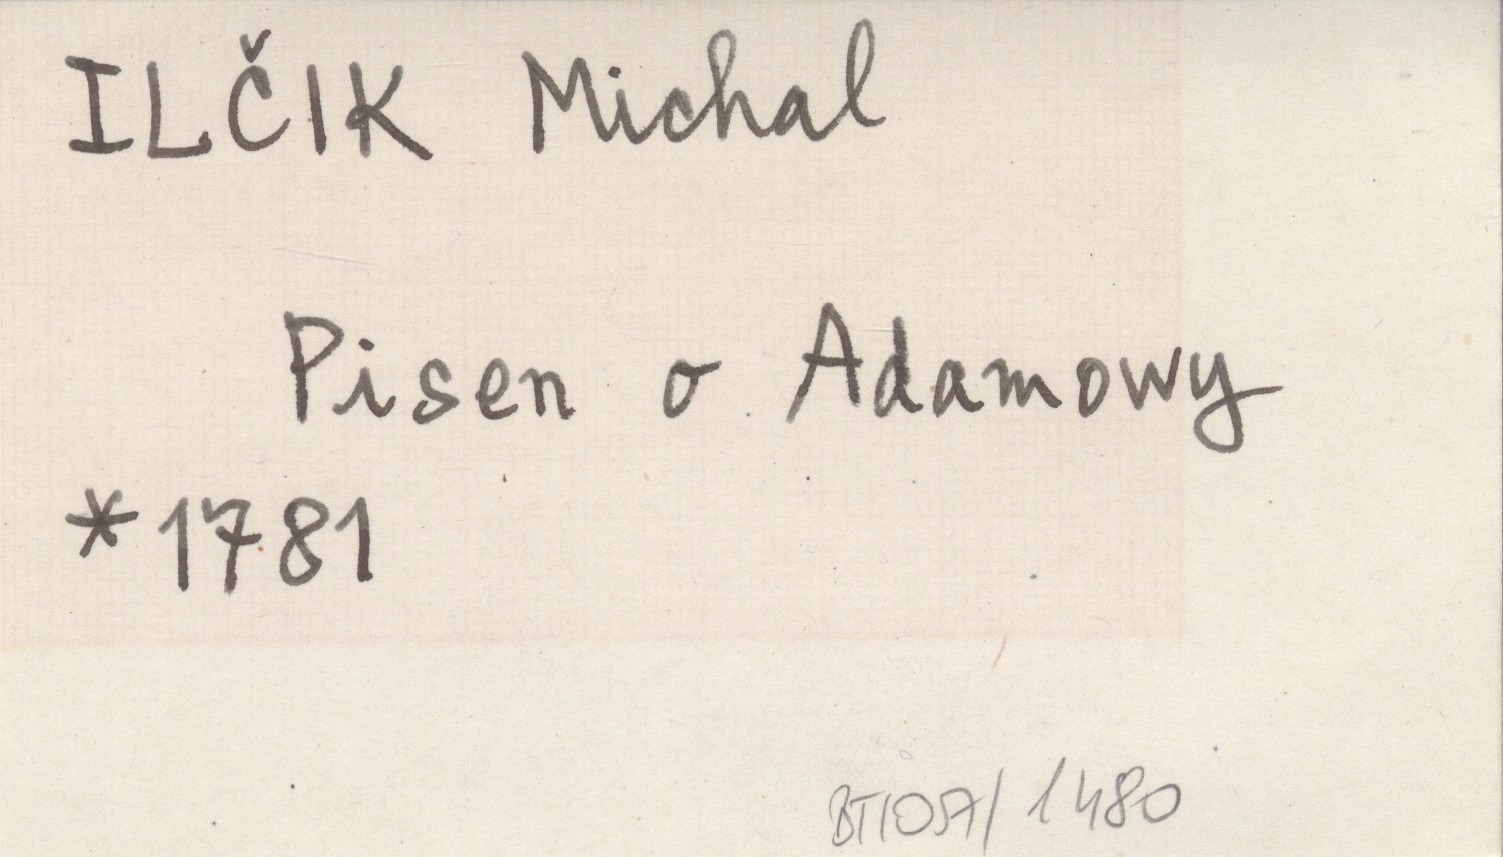 ILČIK Michal
Pisen o Adamowy
*1781
BT1057/1480